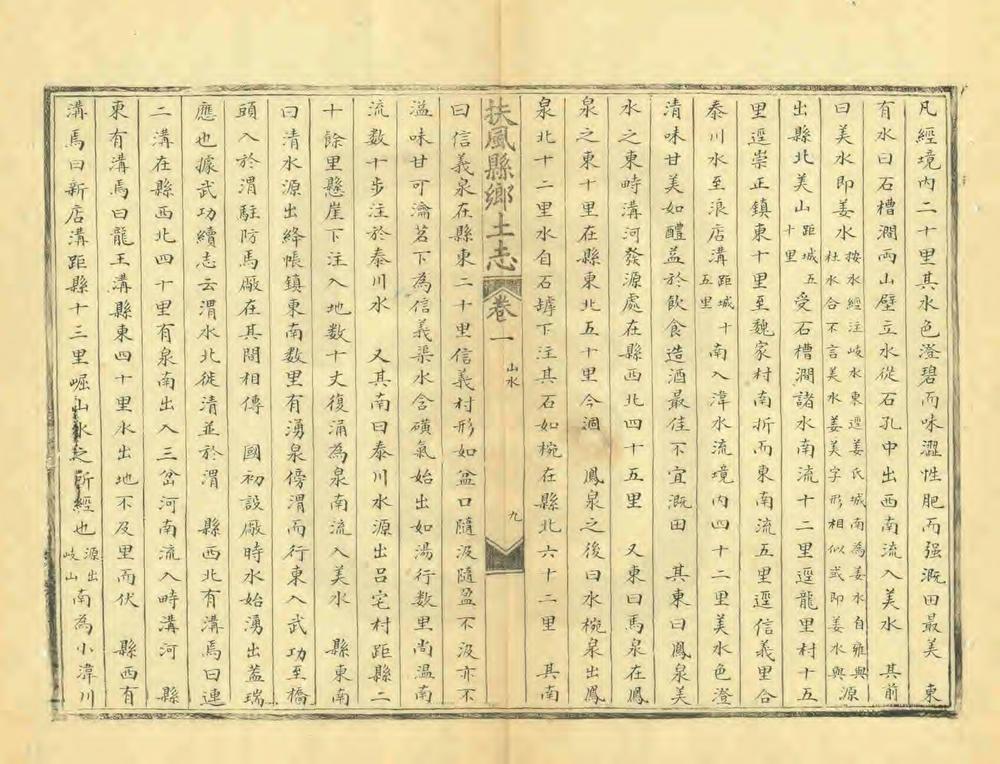 凡經境內二十里其水色澄碧而味澀性肥而强溉田最美　東
有水曰石槽澗兩山壁立水從石孔中出西南流入美水　其前
曰美水即姜水按水經注岐水東逕姜氏城南為姜水自雍與杜水合不言美水姜美字形相似或即姜水與源
出縣北美山距城五十里受石槽澗諸水南流十二里逕龍里村十五
里逕崇正鎮東十里至魏家村南折而東南流五里逕信義里合
泰川水至浪店溝距城十五里南入湋水流境內四十二里美水色澄
清味甘美如醴益於飲食造酒最佳不宜溉田　其東曰鳳泉美
水之東時溝河發源處在縣西北四十五里　又東曰馬泉在鳳
泉之東十里在縣東北五十里今涸　鳳泉之後曰水椀泉出鳳
泉北十二里水自石罅下注其石如椀在縣北六十二里　其南
扶風縣鄉土志　卷一　山水　九
曰信義泉在縣東二十里信義村形如盆口隨汲隨盈不汲亦不
溢味甘可瀹茗下為信義渠水含磺氣始出如湯行數里尚溫南
流數十步注於泰川水　又其南曰泰川水源出呂宅村距縣二
十餘里懸崖下注入地數十丈復涌為泉南流入美水　縣東南
曰清水源出絳帳鎮東南數里有湧泉傍渭而行東入武功至橋
頭入於渭駐防馬廠在其間相傳　國初設廠時水始湧出蓋瑞
應也據武功續志云渭水北徙清並於渭　縣西北有溝焉曰連
二溝在縣西北四十里有泉南出入三岔河南流入時溝河　縣
東有溝焉曰龍王溝縣東四十里水出地不及里而伏　縣西有
溝焉曰新店溝距縣十三里崛山水之所經也源出岐山南為小湋川